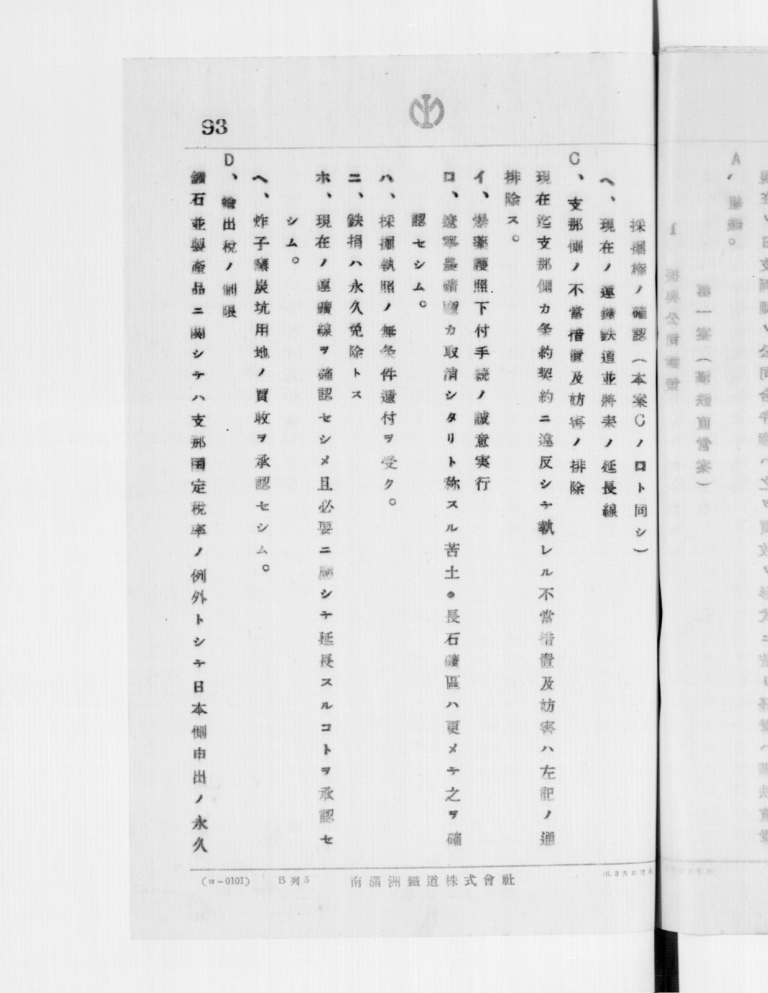 93
採掘権ノ確認(本案Cノロト同シ)
ヘ、現在ノ運鑛鉄道並將来ノ延長線
C、支那側ノ不當措置及妨害ノ排除
現在迄支那側カ条約契約ニ違反シテ執レル不當措置及妨害ハ左記ノ通
排除ス。
イ、爆薬護照下付手続ノ誠意実行
ロ、遼寧農礦廳カ取消シタリト称スル苦土、長石礦區ハ更メテ之ヲ確
認セシム。
ハ、採掘執照ノ無条件還付ヲ受ク。
ニ、鉄捐ハ永久免除トス
ホ、現在ノ運礦線ヲ確認セシメ且必要ニ應シテ延長スルコトヲ承認セ
シム。
ヘ、炸子窰炭坑用地ノ買收ヲ承認セシム。
D、輸出税ノ制限
鑛石並製産品ニ関シテハ支那国定税率ノ例外トシテ日本側申出ノ永久
(ヨ-0101) B列5 南滿洲鐵道株式會社